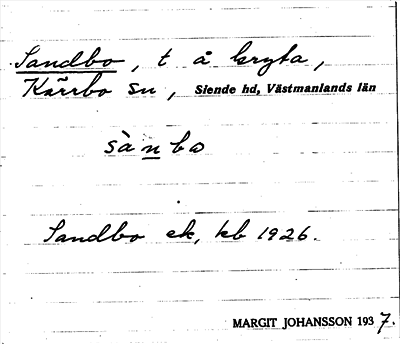 Sandbo, t å kryta,
Kärrbo sn, Siende hd, Västmanlands län
sànbo
Sandbo ek, kb 1926.
MARGIT JOHANSSON 1937.